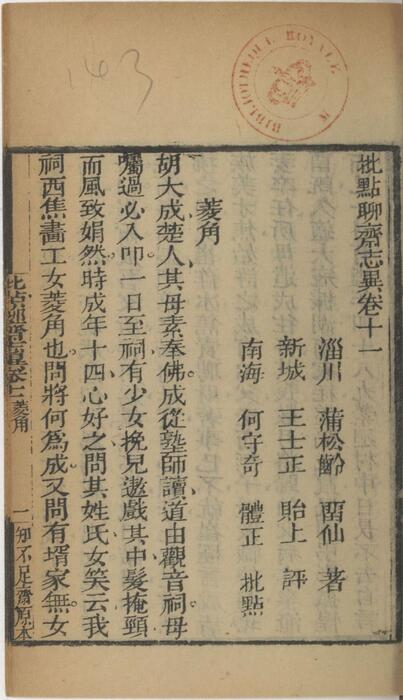 143
BIBLIOTHEQUE ROYALE
批點聊齋志異卷十一
淄川 蒲松齡 畱仙 著
新城 王士正 貽上 評
南海 何守奇 體正 批點
菱角
胡大成楚人其母素奉佛成從塾師讀道由觀音祠母
囑過必入叩一日至祠有少女挽兒遨戲其中髮掩頸
而風致娟然時成年十四心好之問其姓氏女笑云我
祠西焦畫工女菱角也問將何爲成又問有壻家無女
批點聊齋志異卷十一 菱角 一 知不足齋原本